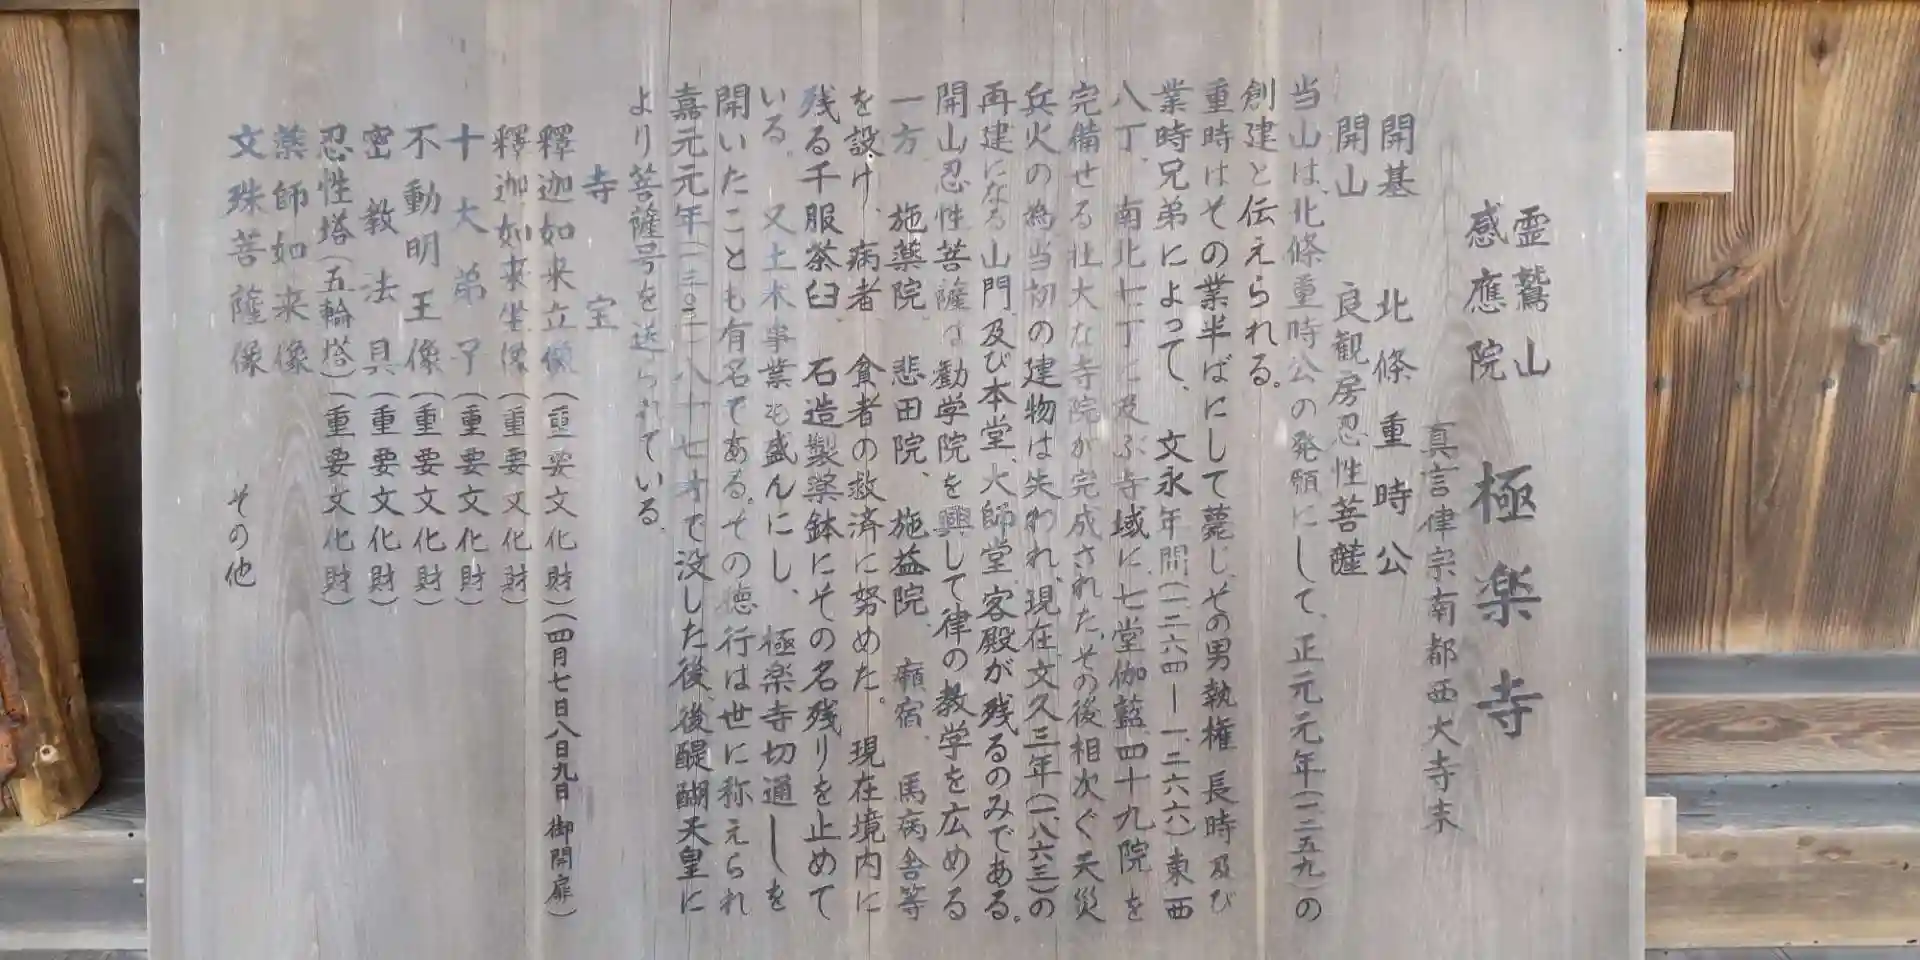 霊鷲山
感應院
極楽寺
真言律宗南都西大寺末
開基 北條重時公
開山 良観房忍性菩薩
当山は、北條重時公の発願にして、正元元年(一二五九)の
創建と伝えられる。
重時はその業半ばにして薨じ、その男執権 長時及び
業時兄弟によって、文永年間(一二六四ー一二六六)東西
八丁、南北七丁に及ぶ寺域に七堂伽藍四十九院を
完備せる壮大な寺院が完成された、その後相次ぐ天災
兵火の為当初の建物は失われ、現在文久三年(一八六三)の
再建になる山門及び本堂、大師堂、客殿が残るのみである。
開山忍性菩薩は勧学院を興して律の教学を広める
一方、施薬院、悲田院、施益院、癩宿、馬病舎等
を設け、病者、貧者の救済に努めた。現在境内に
残る千服茶臼、石造製薬鉢にその名残りを止めて
いる。又土木事業も盛んにし、極楽寺切通しを
開いたことも有名である。その徳行は世に称えられ
嘉元元年(一三〇三)八十七才で没した後、後醍醐天皇に
より菩薩号を送られている。
寺宝
釋迦如来立像(重要文化財)(四月七日八日九日 御開扉)
釋迦如来坐像(重要文化財)
十大弟子(重要文化財)
不動明王像(重要文化財)
密教法具(重要文化財)
忍性塔(五輪塔)(重要文化財)
薬師如来像
文殊菩薩像 その他